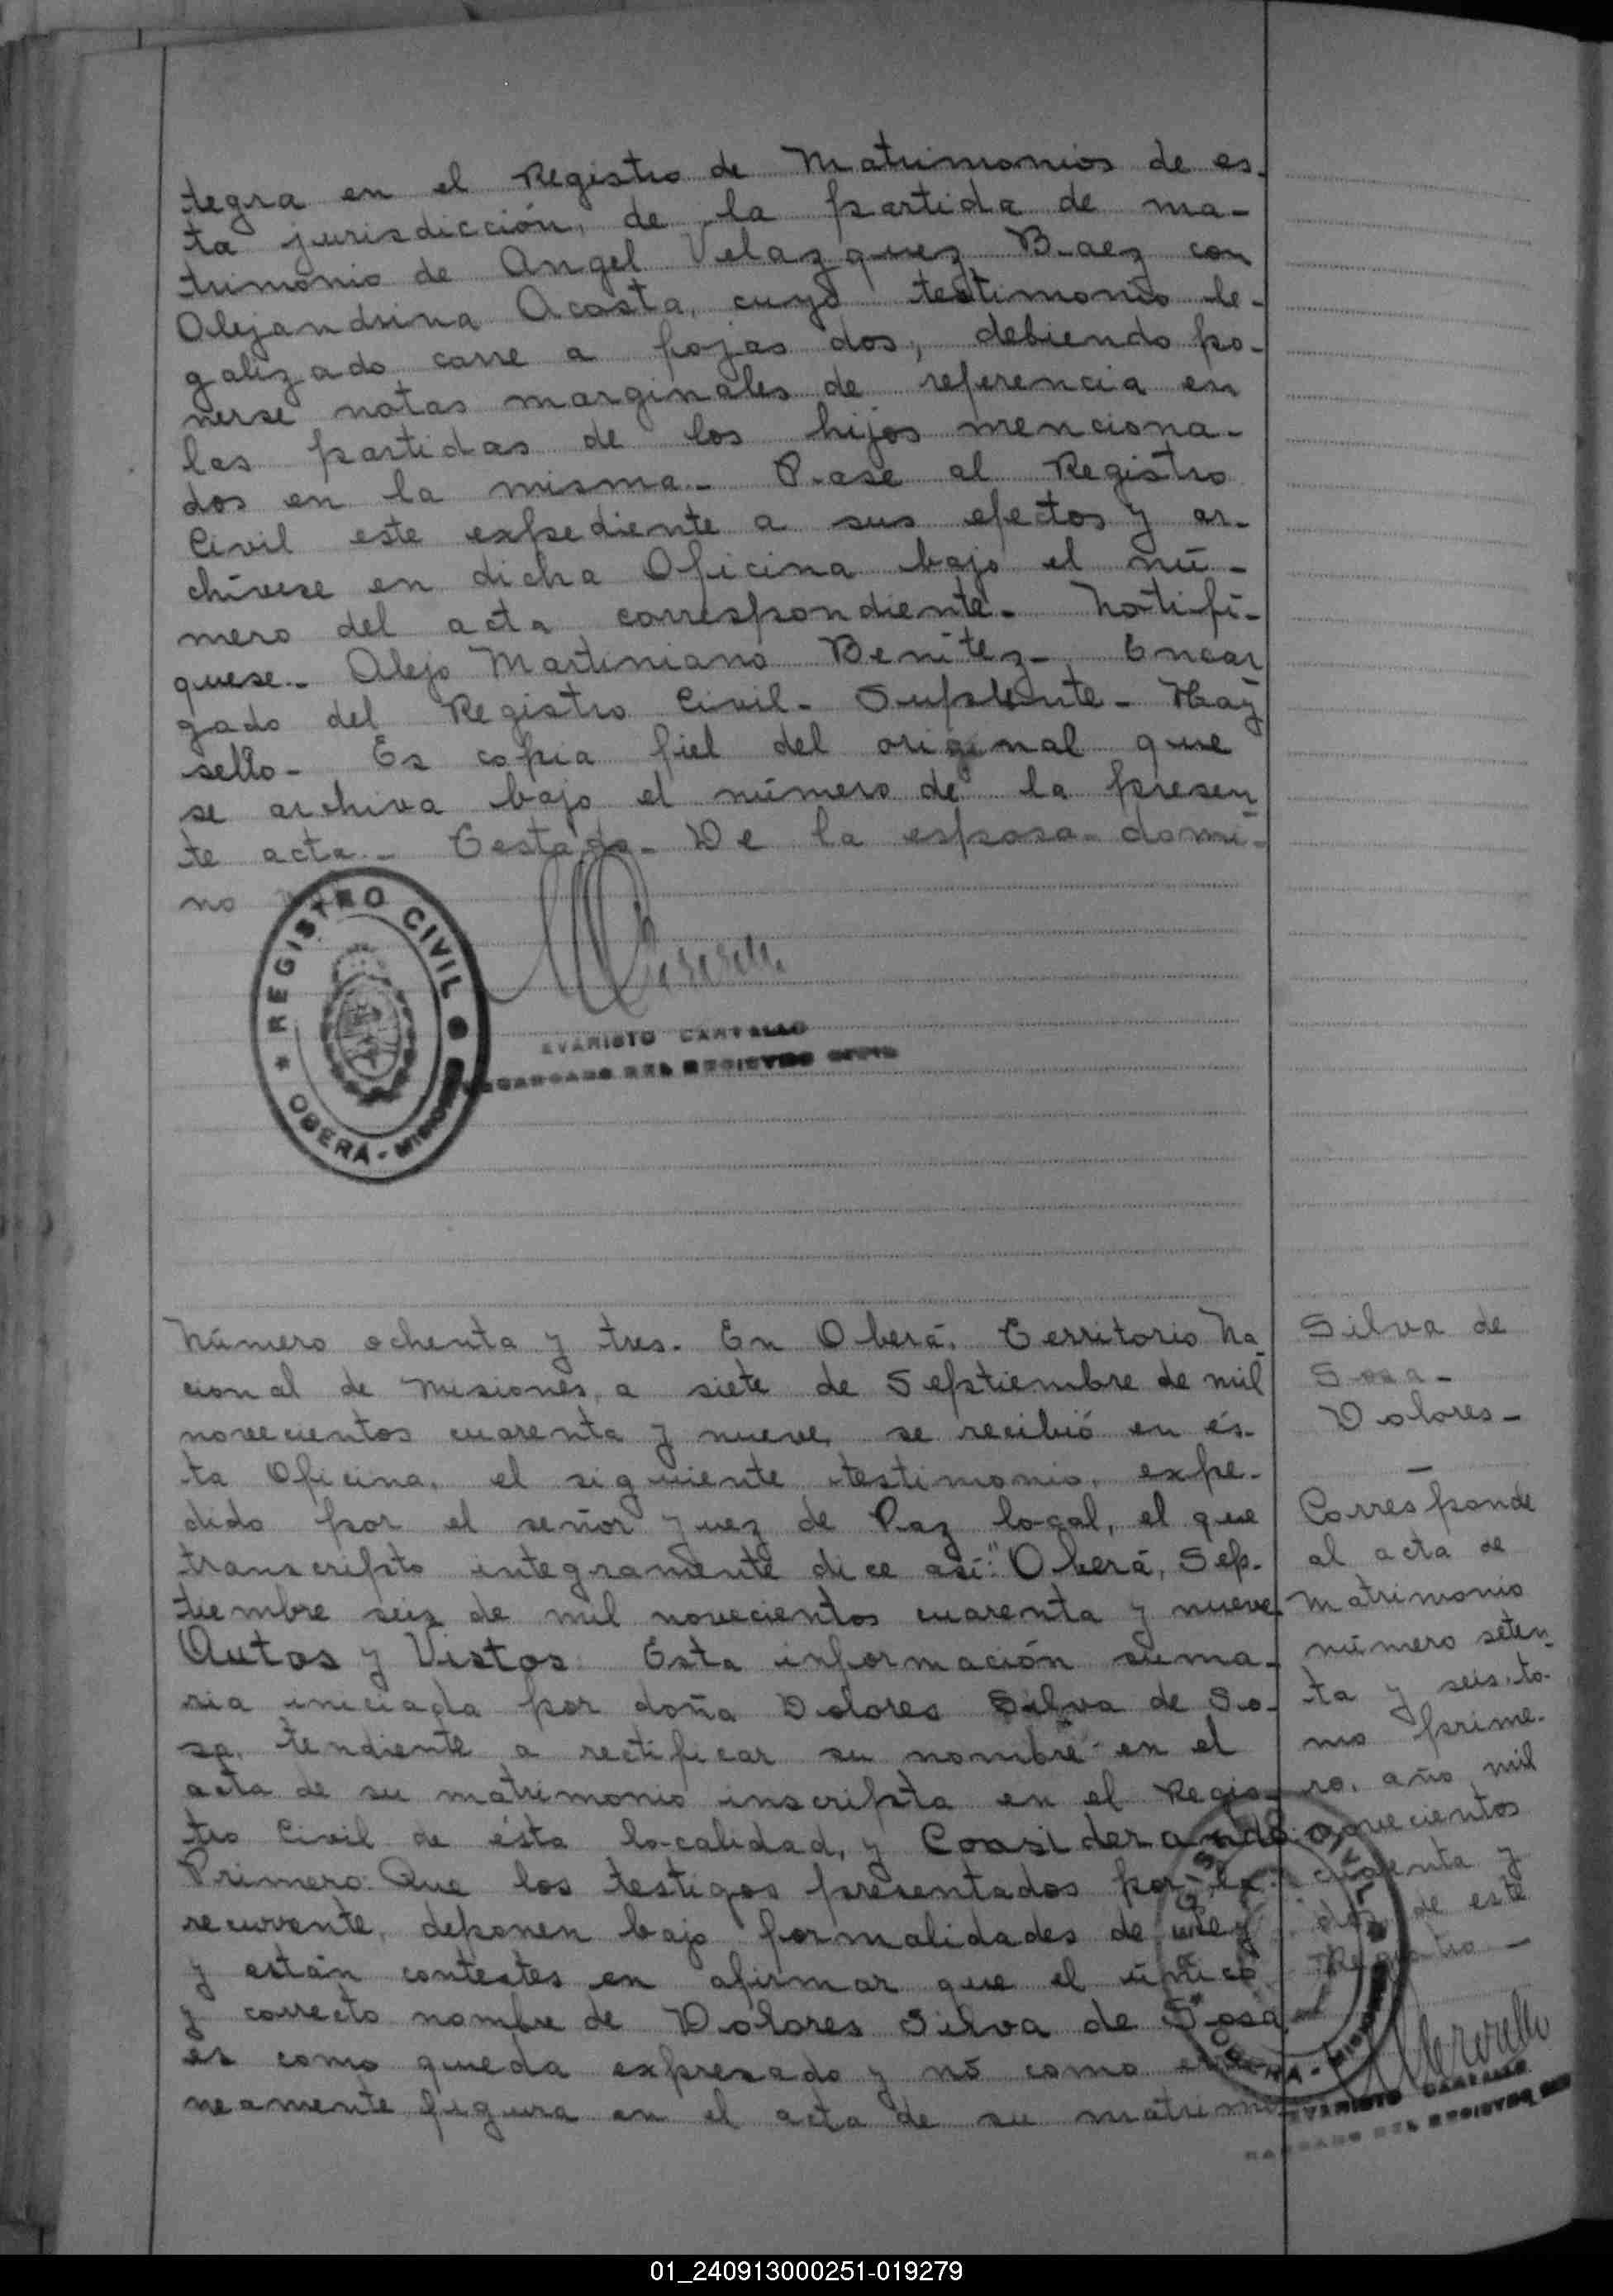 tegra en el Registro de Matrimonios de es-
ta jurisdicción, de la partida de ma-
trimonio de Angel Velazquez Baez con
Alejandrina Acosta, cuyo testimonio le-
galizado corre a fojas dos, debiendo po-
nerse notas marginales de referencia en
las partidas de los hijos menciona-
dos en la misma.- Pase al Registro
Civil este expediente a sus efectos y ar-
chívese en dicha Oficina bajo el nú-
mero del acta correspondiente.- Notifí-
quese.- Alejo Martiniano Benitez-, Encar
gado del Registro Civil- Suplente- Hay
sello- Es copia fiel del original que
se archiva bajo el número de la presen
te acta.- Testado- De la esposa- domi-
no
REGISTRO CIVIL
OBERÁ - MISIONES
EVARISTO CARVALLO
ENCARGADO DEL REGISTRO CIVIL
Número ochenta y tres. En Oberá, Territorio Na
cional de Misiones, a siete de Septiembre de mil
novecientos cuarenta y nueve, se recibió en és-
ta Oficina, el siguiente testimonio, expe-
dido por el señor Juez de Paz local, el que
transcripto integramente dice así: "Oberá, Sep-
tiembre seis de mil novecientos cuarenta y nueve
Autos y Vistos: Esta información suma-
ria iniciada por doña Dolores Silva de So-
sa, tendiente a rectificar su nombre en el
acta de su matrimonio inscripta en el Regis-
tro Civil de ésta localidad, y Considerando:
Primero: Que los testigos presentados por la
recurrente, deponen bajo formalidades de ley
y están contestes en afirmar que el único
y correcto nombre de Dolores Silva de Sosa
es como queda expresado y nó como
neamente figura en el acta de su matrimo
Silva de
Sosa-
Dolores-
Corresponde
al acta de
matrimonio
número seten
ta y seis, to-
mo prime-
ro, año mil
novecientos
cuarenta y
de este
Registro -
EVARISTO CARVALLO
ENCARGADO DEL REGISTRO CIVIL
01_240913000251-019279